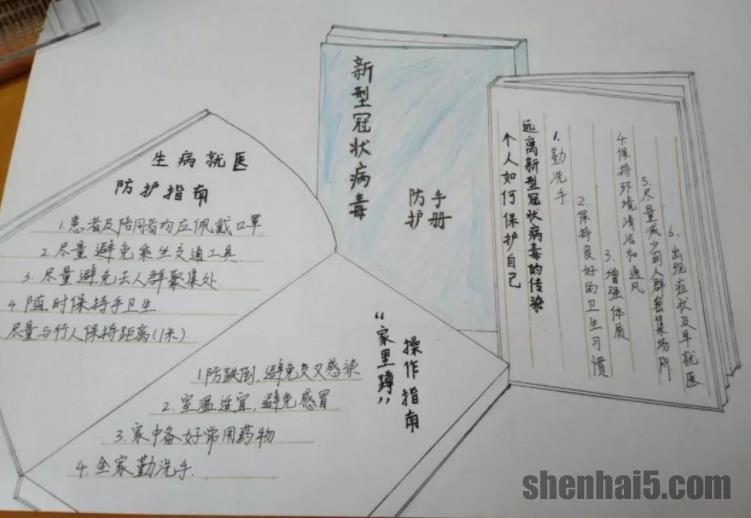 新型冠状病毒
防护
手册
生病就医
防护指南
1.患者及陪同者均应佩戴口罩
2.尽量避免乘坐交通工具
3.尽量避免去人群聚集处
4.随时保持手卫生
尽量与行人保持距离(1米)
个人如何保护自己
远离新型冠状病毒的传染
1.勤洗手
2.保持良好的卫生习惯
3.增强体质
4.保持环境清洁和通风
5.尽量减少到人群密集场所
6.出现症状及早就医
"家里蹲"
操作指南
1.防跌倒,避免交叉感染
2.室温适宜,避免感冒
3.家中备好常用药物
4.全家勤洗手.
shenhai5.com